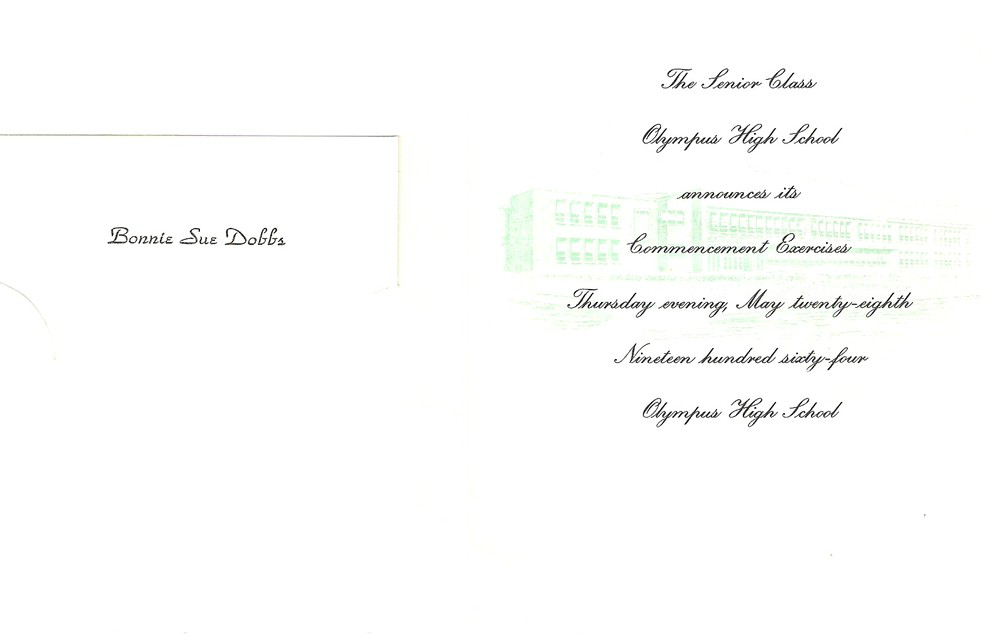 Bonnie Sue Dobbs
The Senior Class
Olympus High School
announces its
Commencement Exercises
Thursday evening, May twenty-eighth
Nineteen hundred sixty-four
Olympus High School